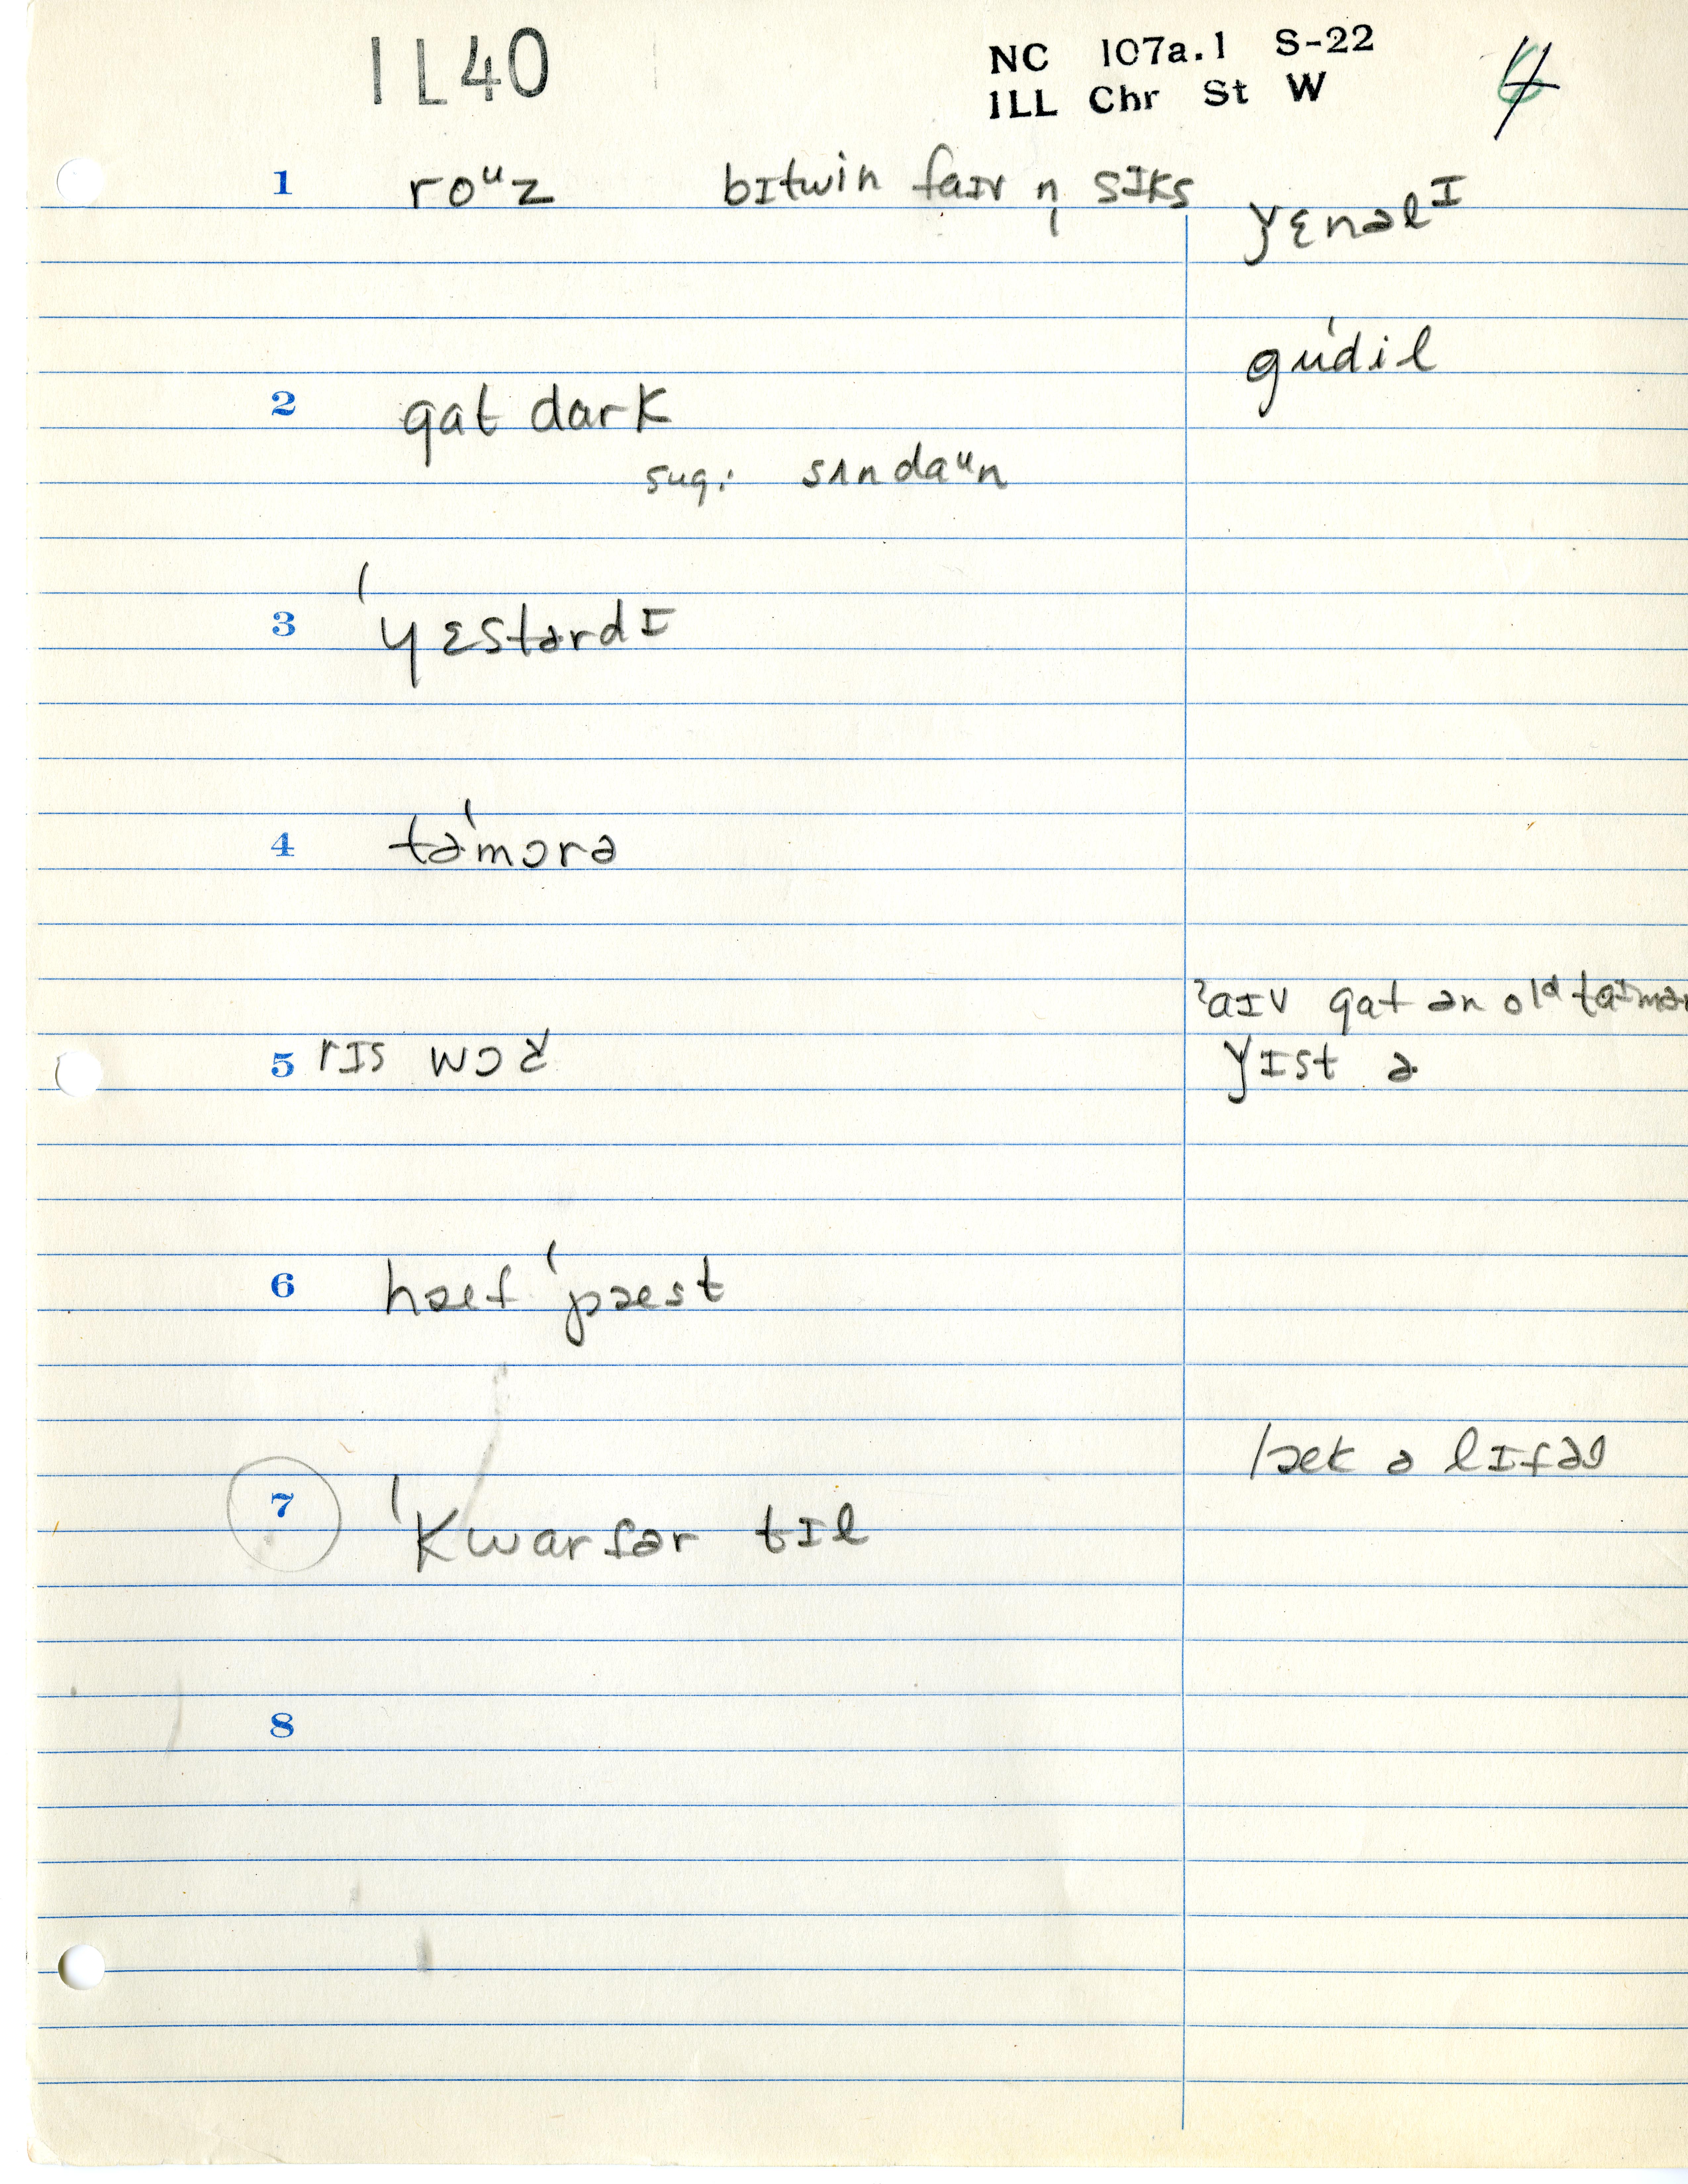 IL40
NC 107a.1 S-22
ILL Chr St W
4
1 roᵘz bɪtwin faɪv n̩ sɪks
ɣɛnəlᴵ
gu'dil
2 gat dark
sug: sʌndaᵘn
3 'yɛstərdɪ
4 tə'mɔrə
ˀaɪv gat ən olᵈ taɪmər
5 rɪs wɔɚ̌
ɣɪst ə
6 hæf 'pæst
læk ə lɪfəl
7 'kwarfər tɪl
8